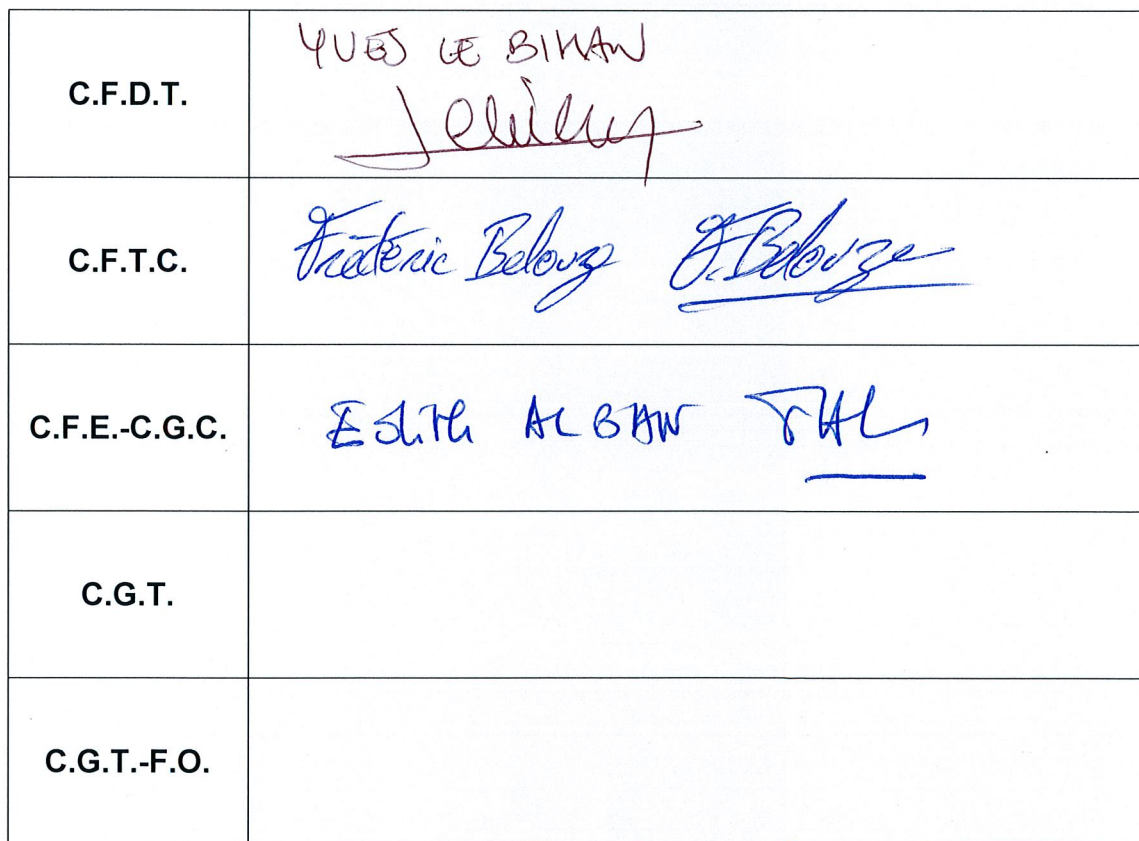 C.F.D.T.
YVES LE BIHAN
C.F.T.C.
Frédéric Belouze F. Belouze
C.F.E.-C.G.C.
Edith ALBAN
C.G.T.
C.G.T.-F.O.